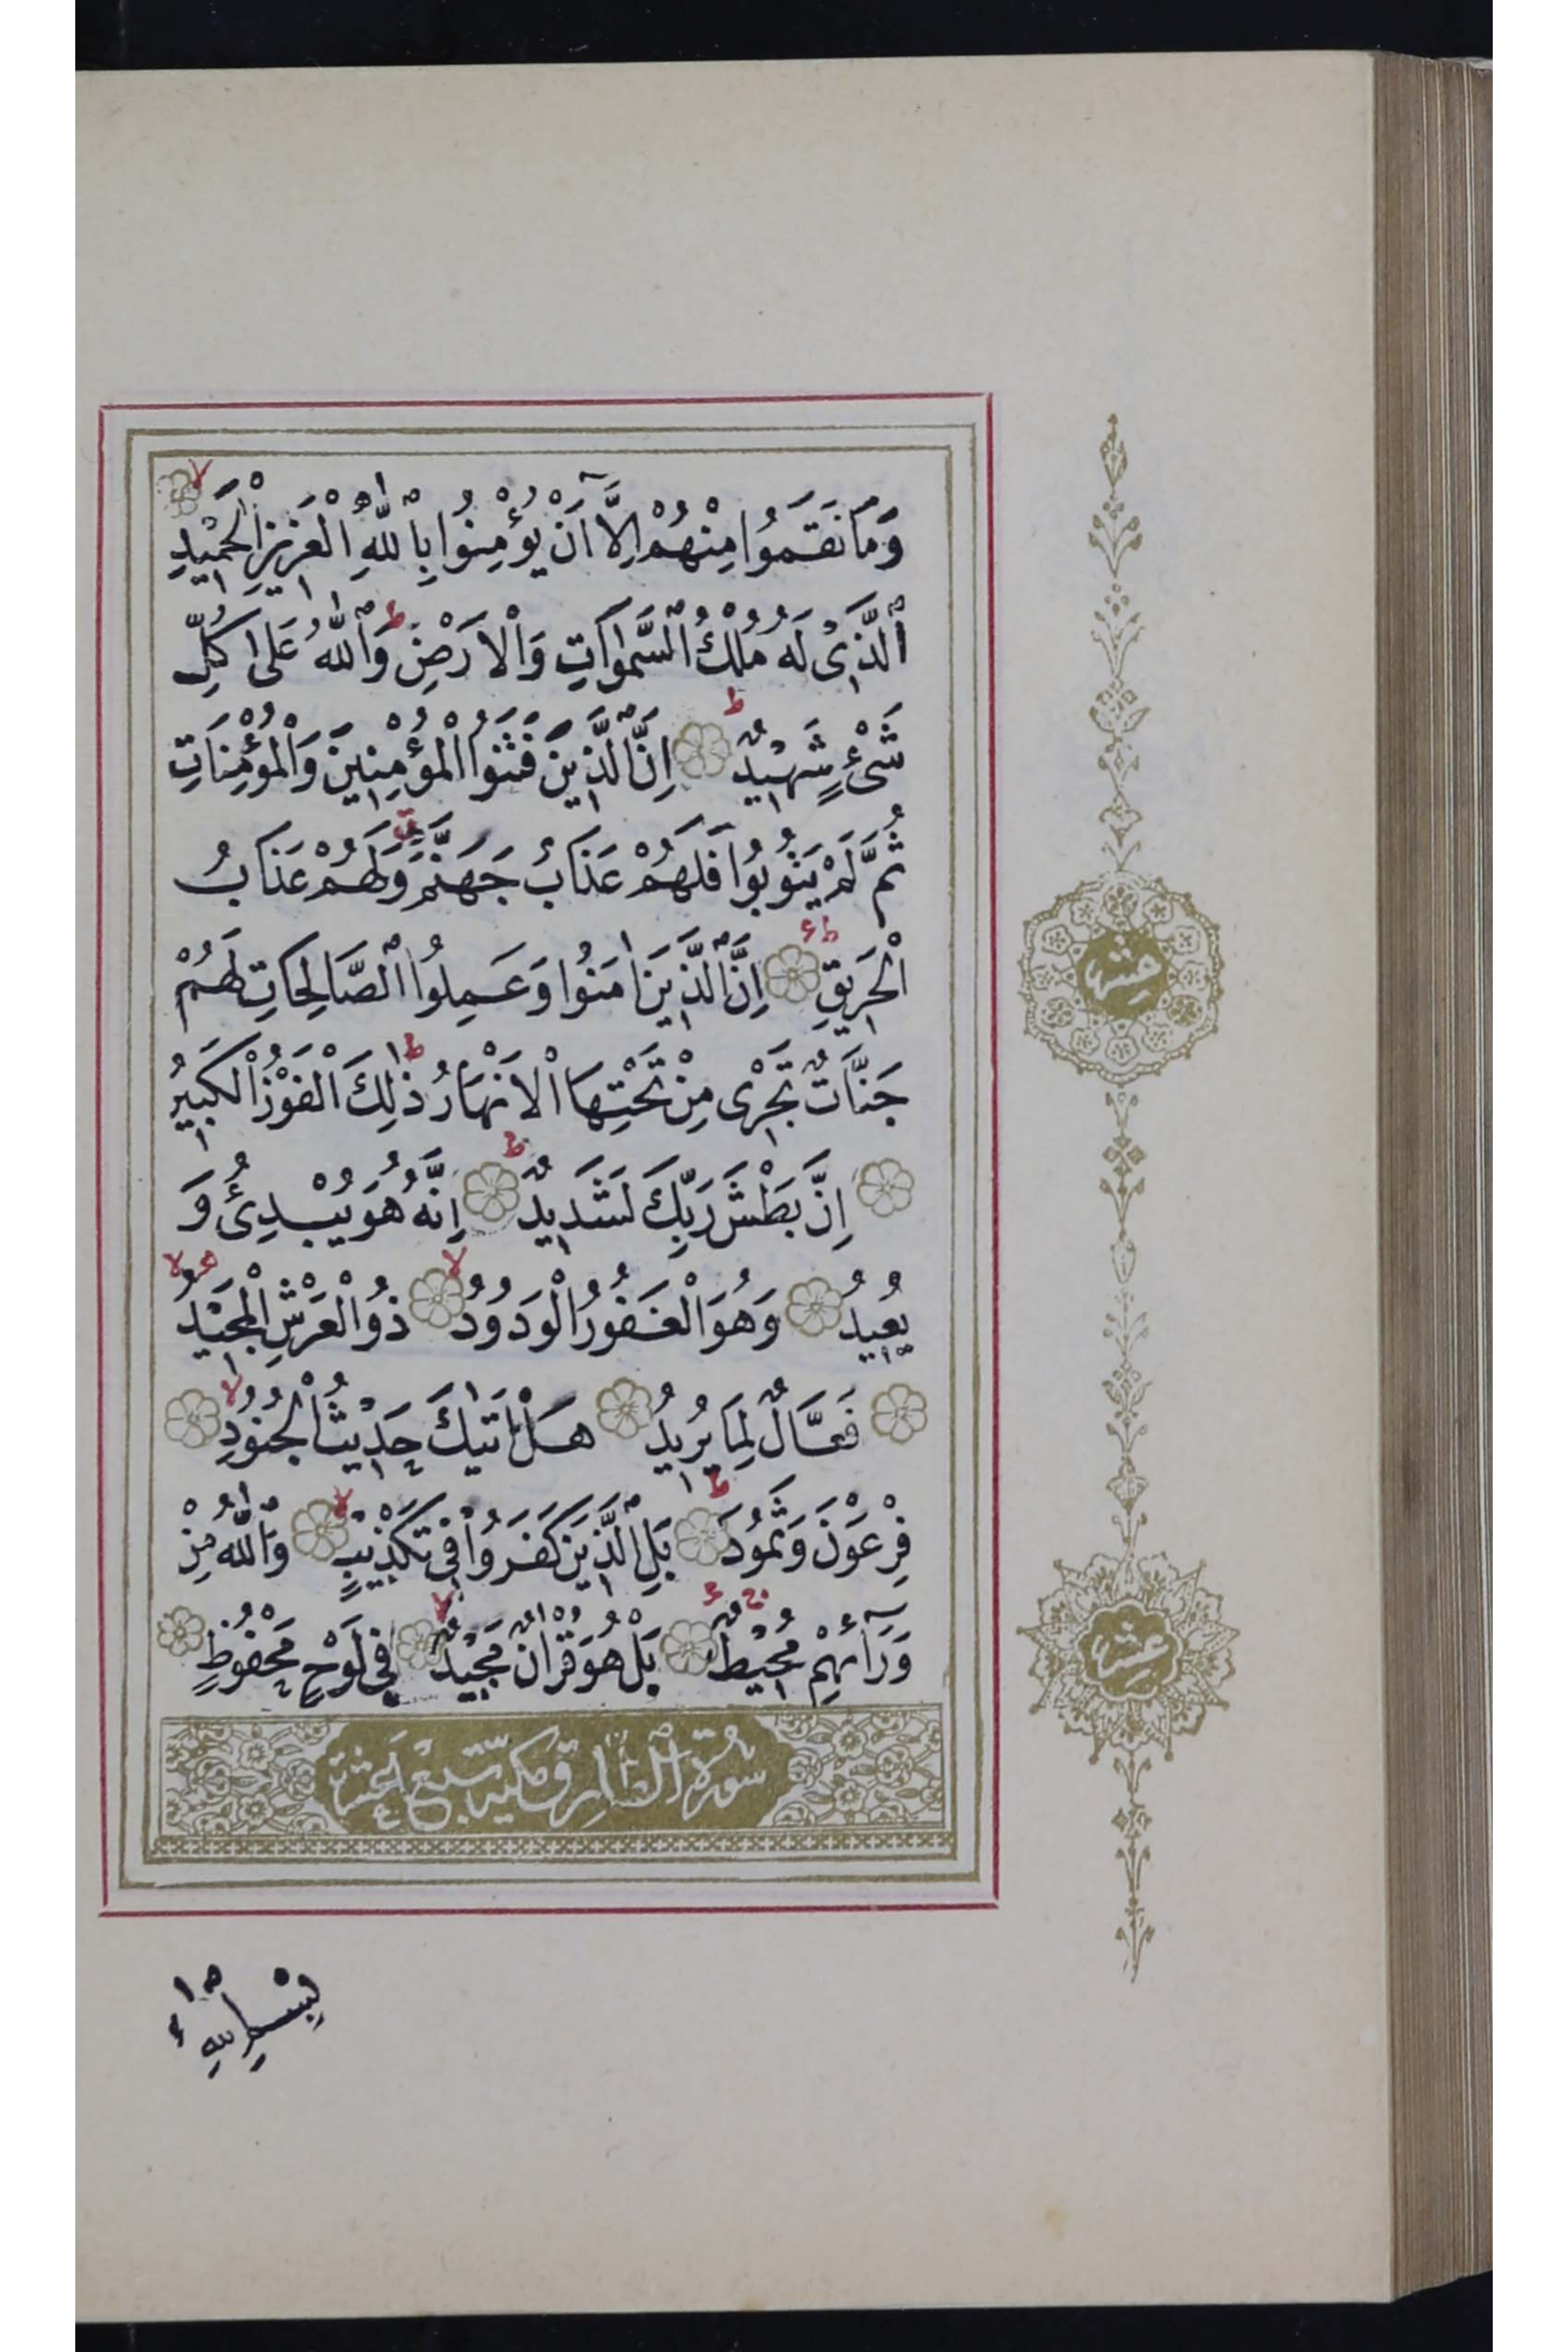 وَمَا نَقَمُوا مِنْهُمْ اِلَّٓا اَنْ يُؤْمِنُوا بِاللّٰهِ الْعَزِيزِ الْحَمِيْدِ لا
اَلَّذِىْ لَهُ مُلْكُ السَّمٰوَاتِ وَالْاَرْضِ ط وَاللّٰهُ عَلٰى كُلِّ
شَىْءٍ شَهِيْدٌ ط اِنَّ الَّذِينَ فَتَنُوا الْمُؤْمِنِينَ وَالْمُؤْمِنَاتِ
ثُمَّ لَمْ يَتُوبُوا فَلَهُمْ عَذَابُ جَهَنَّمَ وَلَهُمْ عَذَابُ
الْحَرِيقِ ط ء اِنَّ الَّذِينَ اٰمَنُوا وَعَمِلُوا الصَّالِحَاتِ لَهُمْ
جَنَّاتٌ تَجْرِى مِنْ تَحْتِهَا الْاَنْهَارُ ط ذٰلِكَ الْفَوْزُ الْكَبِيرُ
اِنَّ بَطْشَ رَبِّكَ لَشَدِيدٌ ط اِنَّهُ هُوَ يُبْدِئُ وَ
يُعِيدُ وَهُوَ الْغَفُورُ الْوَدُودُ لا ذُوالْعَرْشِ الْمَجِيْدُ لا
فَعَّالٌ لِمَا يُرِيدُ هَلْ اَتٰيكَ حَدِيْثُ الْجُنُودِ لا
فِرْعَوْنَ وَثَمُودَ ط بَلِ الَّذِينَ كَفَرُوا فِى تَكْذِيْبٍ لا وَاللّٰهُ مِنْ
وَرَآئِهِمْ مُحِيْطٌ ج بَلْ هُوَ قُرْاٰنٌ مَجِيْدٌ لا فِى لَوْحٍ مَحْفُوظٍ
سُورَةُ الطَّارِقِ مَكِّيَّة سَبْعَ عَشْرَة
عشر
عشر
بِسْمِ اللّٰهِ